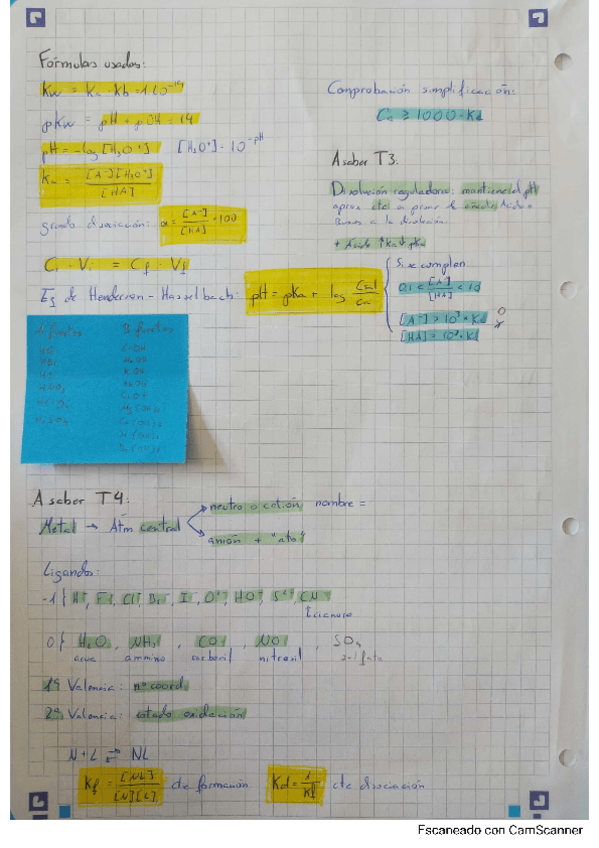 Fórmulas usadas:
Kw = Ka · Kb = 1.10⁻¹⁴
pKw = pH + pOH = 14
pH = -log [H₃O⁺] [H₃O⁺] = 10^-pH
Ka = [A⁻][H₃O⁺] / [HA]
grado disociación: α = [A⁻] / [HA] · 100
Ci · Vi = Cf · Vf
Eq de Henderson - Hasselbach: pH = pKa + log Csal / Ca
Comprobación simplificación:
Ca ≥ 1000 · Ka
A saber T3:
Disolución reguladora: mantiene el pH
aprox cte a pesar de añadir Ácido o
Bases a la disolución.
+ Ácido ↑Ka ↓ pKa
Si se cumplen
0,1 < [A⁻] / [HA] < 10
[A⁻] > 10³ · Ka
[HA] > 10³ · K
A fuertes B fuertes
LiOH
KOH
A saber T4:
Metal → Atm central
neutro o catión nombre =
anión + "ato"
Ligandos:
-1 { H⁻, F⁻, Cl⁻, Br⁻, I⁻, O²⁻, HO⁻, S²⁻, CN⁻
cianuro
0 { H₂O, NH₃, CO, NO, SO₄
acua ammino carbonil nitrosil
1ª Valencia: nº coord
2ª Valencia: estado oxidación
N + L ⇄ NL
Kf = [NL] / [N][L] de formación Kd = 1 / Kf de disociación
Escaneado con CamScanner